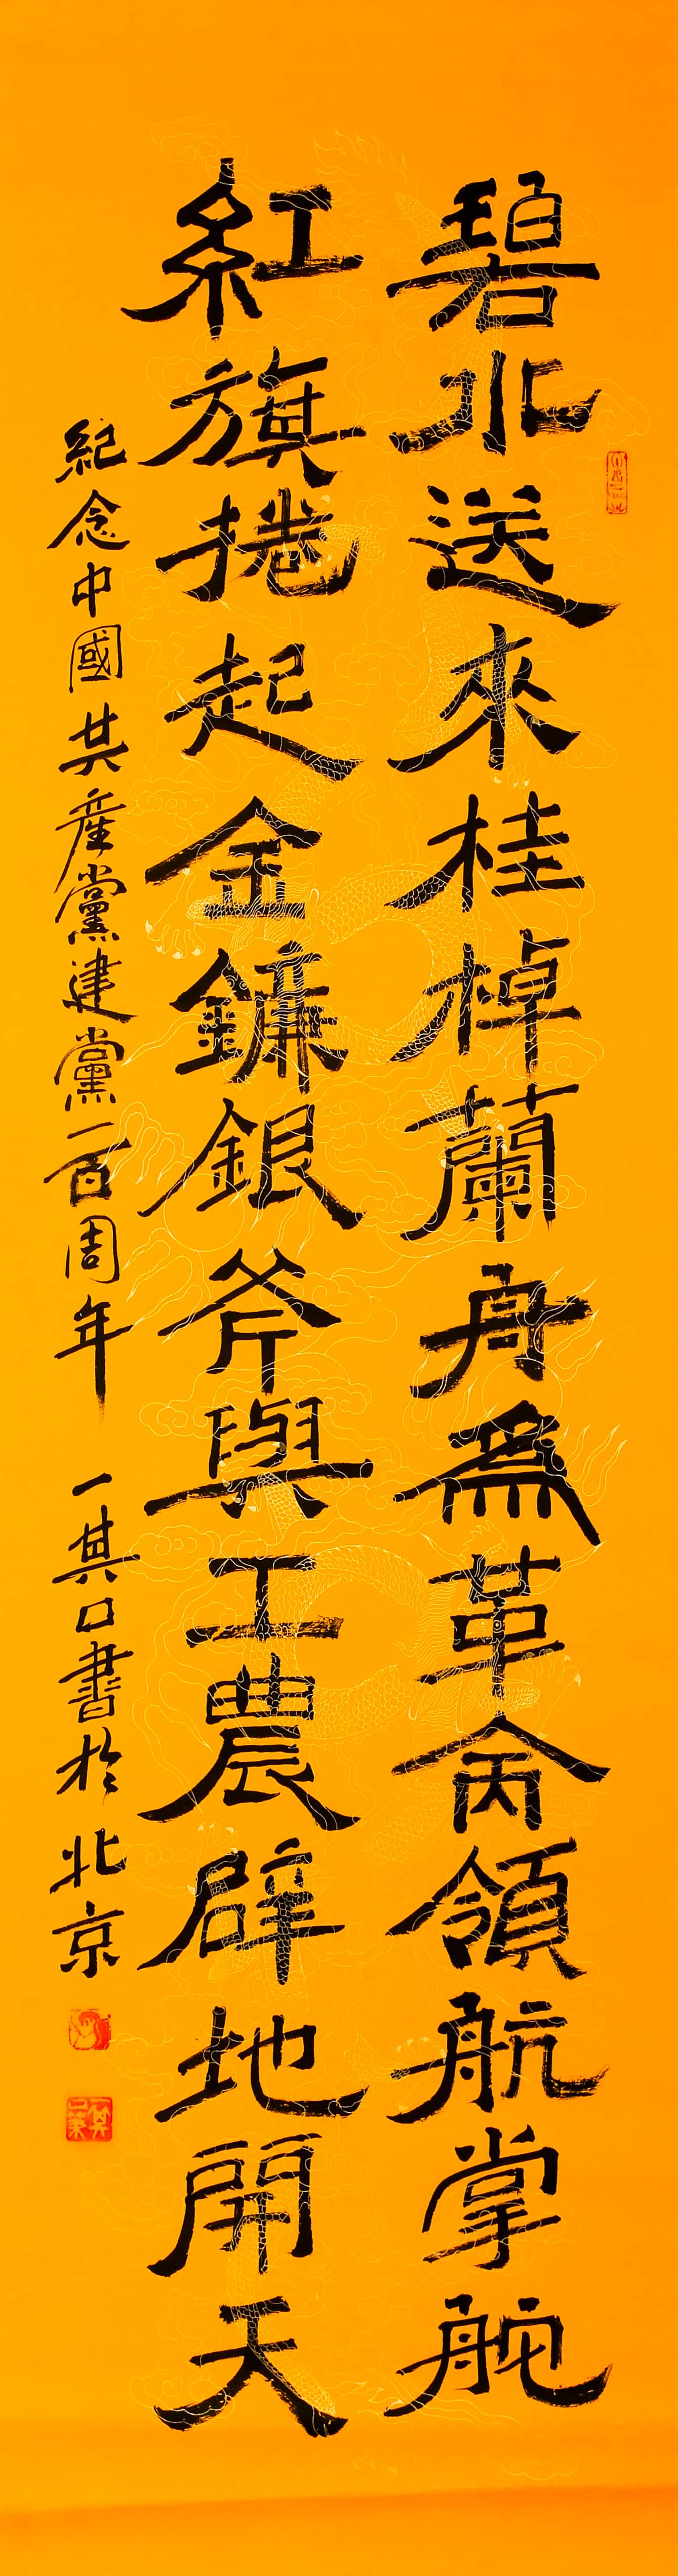 碧水送來桂棹蘭舟爲革命領航掌舵
紅旗捲起金鐮銀斧與工農闢地開天
紀念中國共產黨建黨一百周年 一其口書於北京